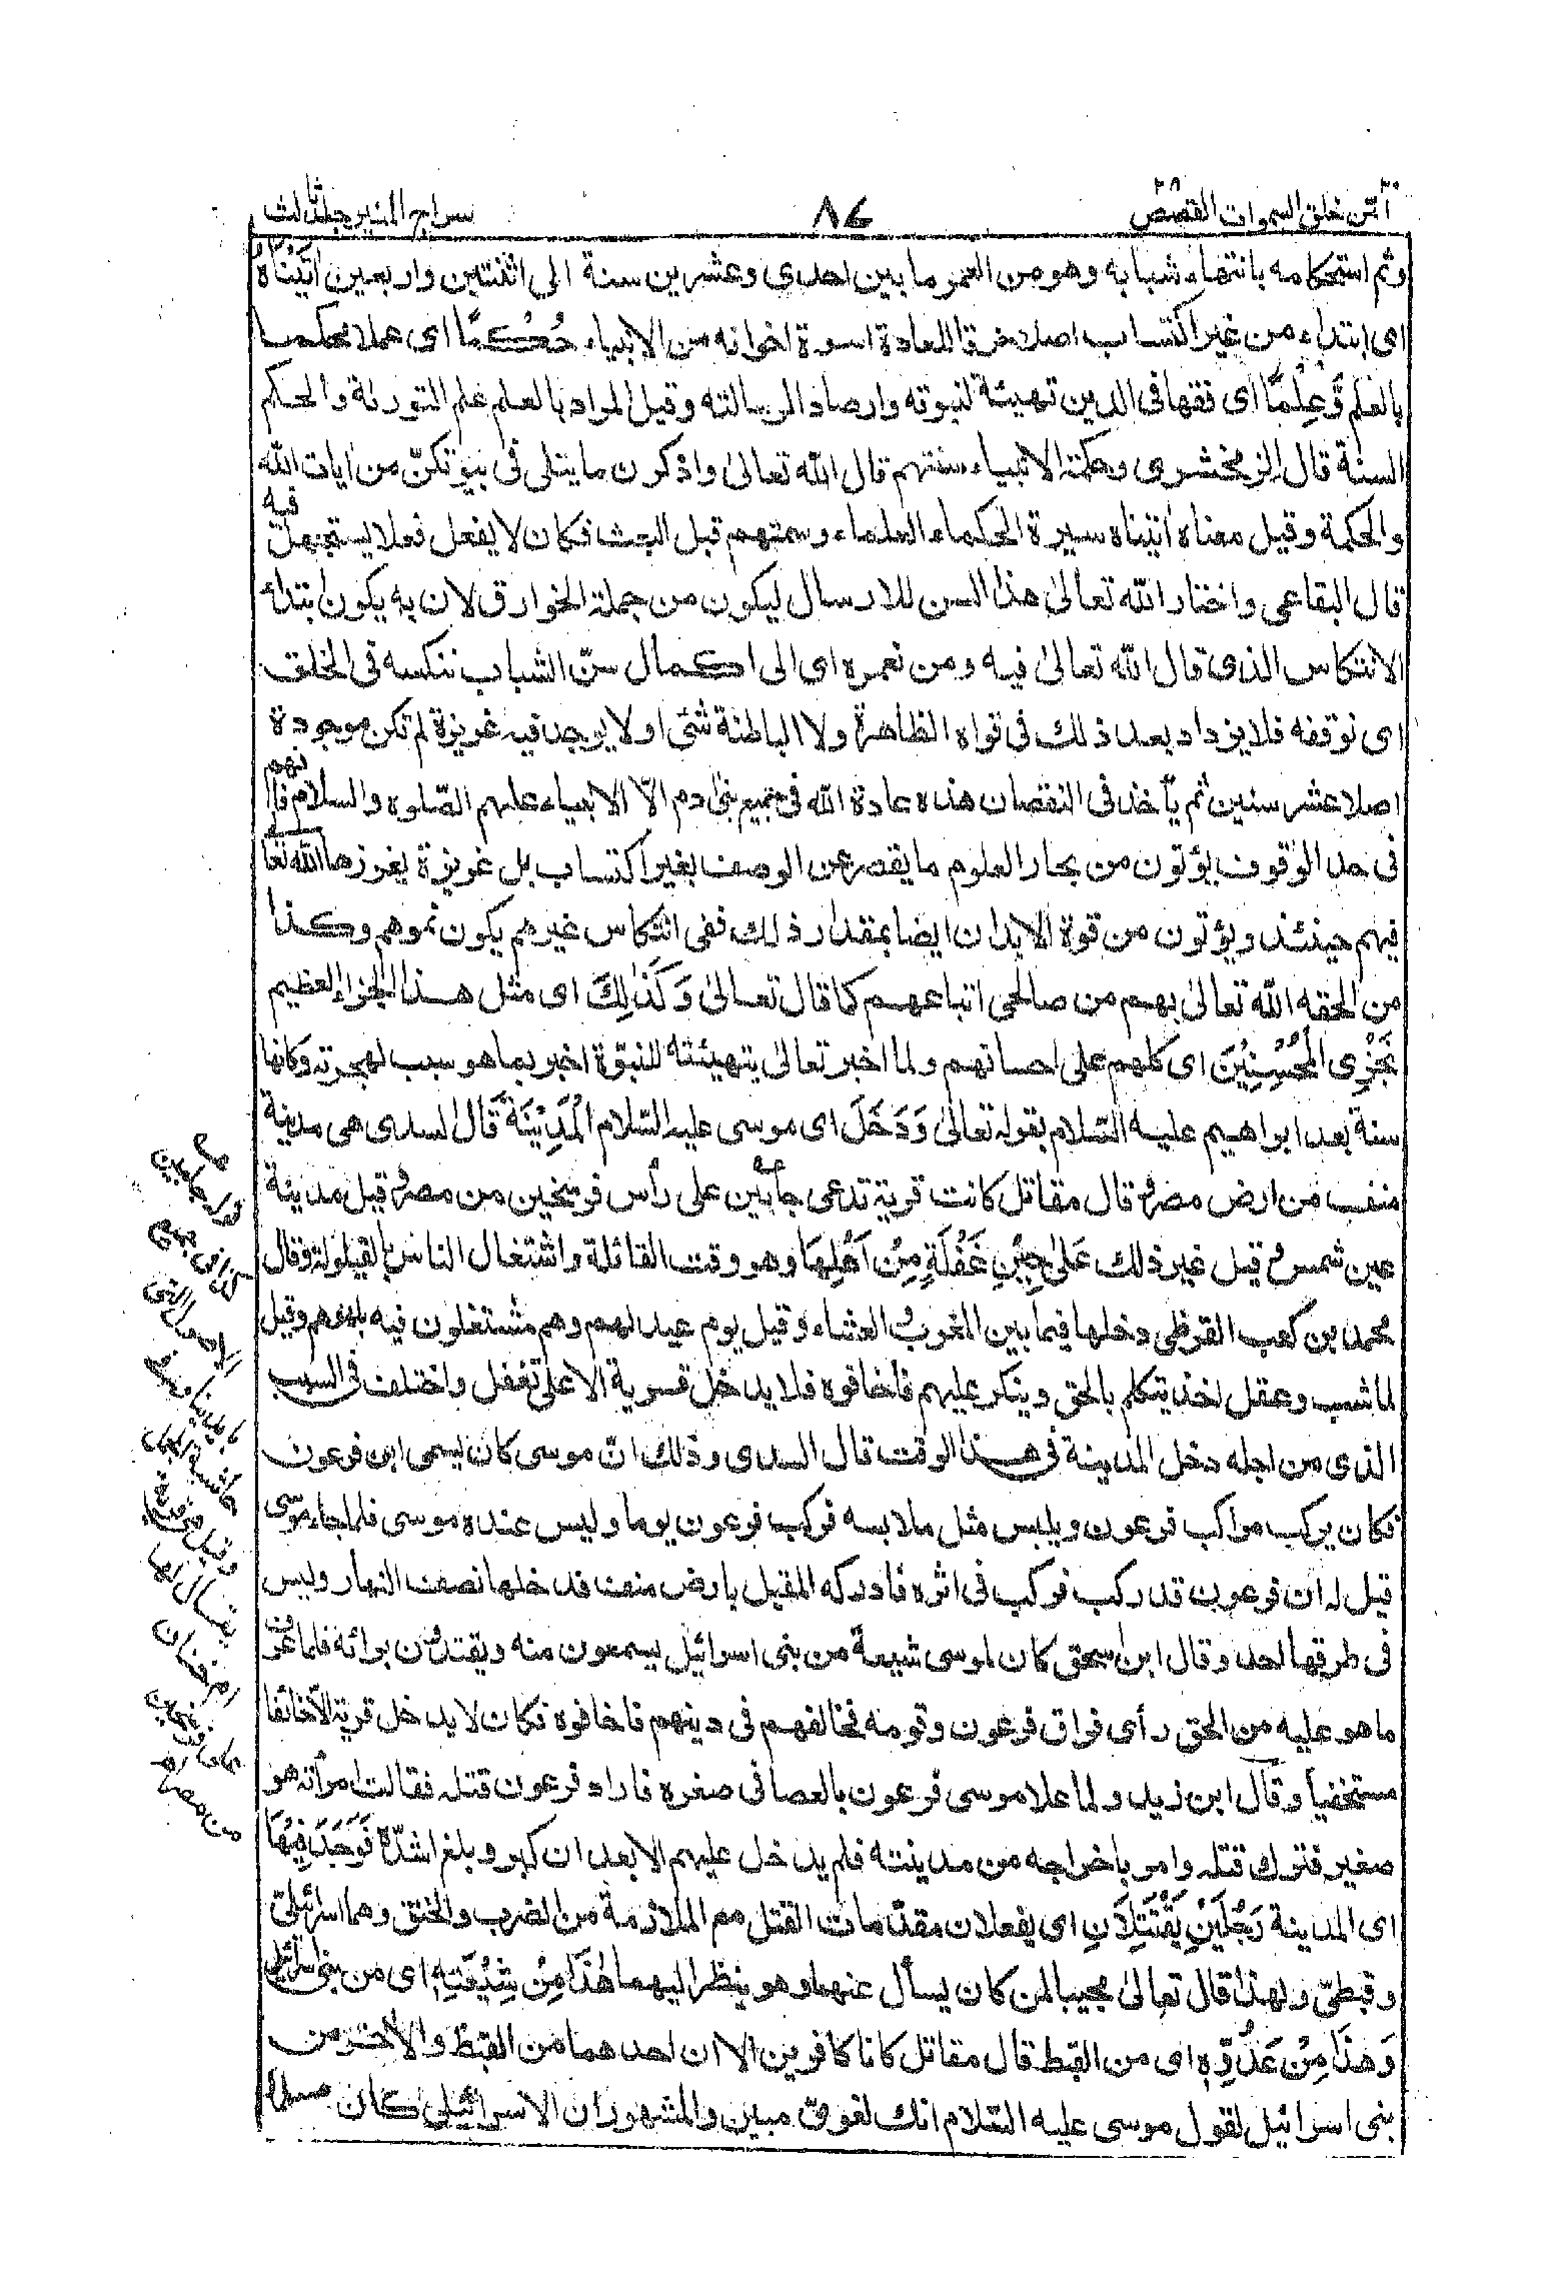 أمن خلق السموات القصص ٢٨
٨٤
سراج المنير جلد ثالث
وتم استحكامه بانتهاء شبابه وهو من العمر ما بين احدى وعشرين سنة الى اثنتين واربعين اٰتَيْنَاهُ
اى ابتداء من غير اكتساب اصلا خرقا للعادة اسوة اخوانه من الانبياء حُكْمًا اى عملا محكما
بالعلم وَّعِلْمًا اى فقها فى الدين تهيئة لنبوته وارصاد الرسالته وقيل المراد بالعلم علم التورىة والحكم
السنة قال الزمخشرى وحكمة الانبياء سنتهم قال الله تعالىٰ واذكرن ما يتلى فى بيوتكنّ من اٰيات الله
والحكمة وقيل معناه اٰتيناه سيرة الحكماء العلماء وسمتهم قبل البعث فكان لا يفعل فعلا يستجهل فيه
قال البقاعى واختار الله تعالىٰ هذا السن للارسال ليكون من جملة الخوارق لان به يكون ابتداء
الانتكاس الذى قال الله تعالىٰ فيه ومن نعمره اى الى اكمال سنّ الشباب ننكسه فى الخلق
اى نوقفه فلا يزداد بعد ذلك فى قواه الظاهرة ولا الباطنة شئ ولا يوجد فيه غريزة لم تكن موجودة
اصلا عشر سنين ثم يأخذ فى النقصان هذه عادة الله فى جميع بنى اٰدم الّا الانبياء عليهم الصّلوة والسلام فانهم
فى حد الوقوف يؤتون من بحار العلوم ما يقصر عن الوصف بغير اكتساب بل غريزة يغرزها الله تعا
فيهم حينئذ ويؤتون من قوة الابدان ايضا بمقدار ذلك ففى انتكاس غيرهم يكون نموهم وكذا
من الحقه الله تعالىٰ بهم من صالحى اتباعهم كما قال تعالىٰ وَكَذٰلِكَ اى مثل هذا الجزاء العظيم
نَجْزِى الْمُحْسِنِيْنَ اى كلهم على احسانهم ولما اخبر تعالىٰ بتهيئته للنبوّة اخبر بما هو سبب لهجرته وكانها
سنة بعد ابراهيم عليه السّلام بقوله تعالىٰ وَدَخَلَ اى موسى عليه السّلام الْمَدِيْنَةَ قال السدى هى مدينة
منف من ارض مصر وقال مقاتل كانت قرية تدعى حابين على رأس فرسخين من مصر وقيل مدينة
عين شمس وقيل غير ذلك عَلىٰ حِيْنِ غَفْلَةٍ مِّنْ اَهْلِهَا وهو وقت القائلة واشتغال الناس بالقيلولة وقال
محمد بن كعب القرظى دخلها فيما بين المغرب والعشاء وقيل يوم عيد لهم وهم مشتغلون فيه بلهوهم وقيل
لما شب وعقل اخذ يتكلم بالحق وينكر عليهم فأخافوه فلا يدخل قرية الا على تغفل واختلف فى السبب
الذى من اجله دخل المدينة فى هذا الوقت قال السدى وذلك انّ موسى كان يسمى ابن فرعون
فكان يركب مراكب فرعون ويلبس مثل ملابسه فركب فرعون يوما وليس عنده موسى فلما جاء موسى
قيل له ان فرعون قد ركب فركب فى اثره فادركه المقيل بارض منف فدخلها نصف النهار وليس
فى طرقها احد وقال ابن اسحق كان لموسى شيعة من بنى اسرائيل يسمعون منه ويقتدون برائه فلما عرف
ما هو عليه من الحق رأى فراق فرعون وقومه فخالفهم فى دينهم فاخافوه فكان لا يدخل قرية الا خائفا
مستخفيا وقال ابن زيد ولما علا موسى فرعون بالعصا فى صغره فاراد فرعون قتله فقالت امرأته هو
صغير فترك قتله وامر باخراجه من مدينته فلم يدخل عليهم الا بعد ان كبر وبلغ اشدّه فَوَجَدَ فِيْهَا
اى المدينة رَجُلَيْنِ يَقْتَتِلَانِ اى يفعلان مقدّمات القتل مع الملازمة من الضرب والخنق وهما اسرائيلىّ
وقبطىّ ولهذا قال تعالىٰ مجيبا لمن كان يسأل عنهما وهو ينظر اليهما هٰذَا مِنْ شِيْعَتِهٖ اى من بنى اسرائيل
وَهٰذَا مِنْ عَدُوِّهٖ اى من القبط قال مقاتل كانا كافرين الا ان احدهما من القبط والاٰخر من
بنى اسرائيل لقول موسى عليه السّلام انك لغوىّ مبين والمشهور ان الاسرائيلى كان مسلما
قوله حابين
حاشية الجمل
وقيل هى قرية
يقال لها
ام خنان
على فرسخين
من مصر